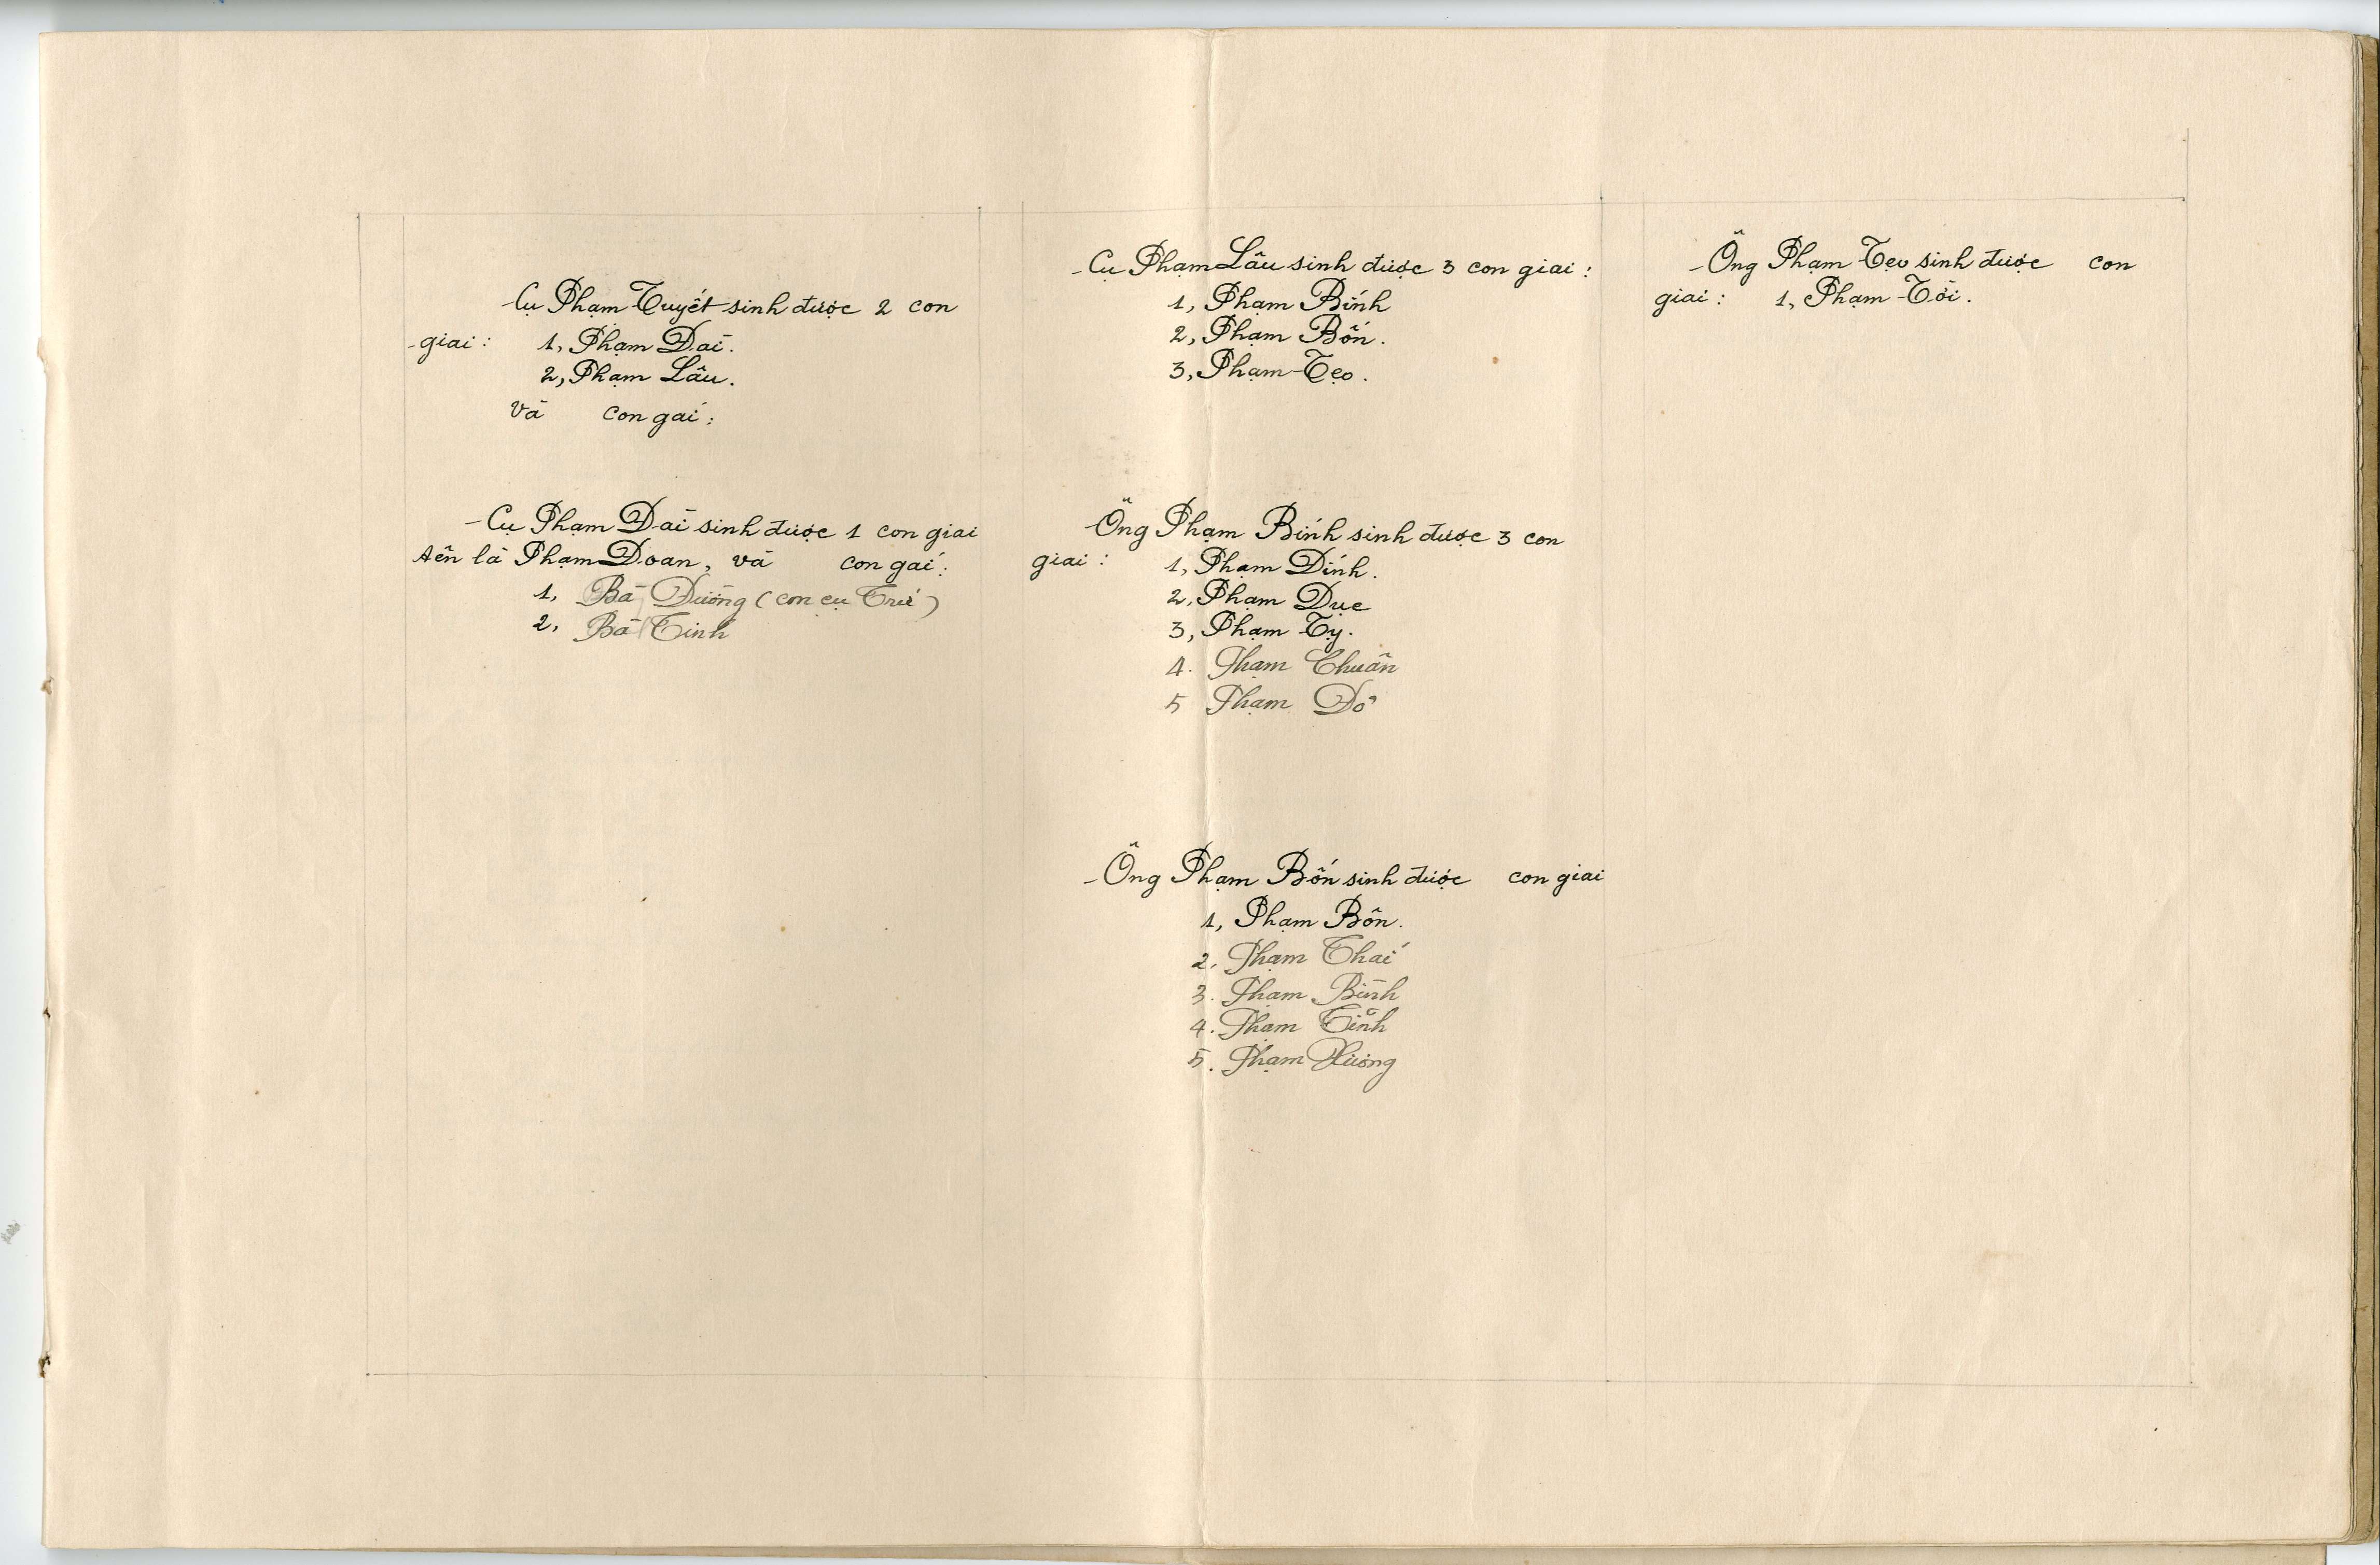 Cụ Phạm Tuyết sinh được 2 con
giai : 1, Phạm Dài.
2, Phạm Lâu.
và con gái :
- Cụ Phạm Dài sinh được 1 con giai
tên là Phạm Doan, và con gái :
1, Bà Dương (con cụ Trứ)
2, Bà Tinh
- Cụ Phạm Lâu sinh được 3 con giai :
1, Phạm Bính
2, Phạm Bốn.
3, Phạm Tẹo.
- Ông Phạm Bính sinh được 3 con
giai : 1, Phạm Dính.
2, Phạm Dục
3, Phạm Tỵ.
4. Phạm Chuân
5 Phạm Dô
- Ông Phạm Bốn sinh được con giai
1, Phạm Bôn.
2, Phạm Thái
3. Phạm Bình
4. Phạm Tĩnh
5. Phạm
- Ông Phạm Tẹo sinh được con
giai : 1, Phạm Tòi.